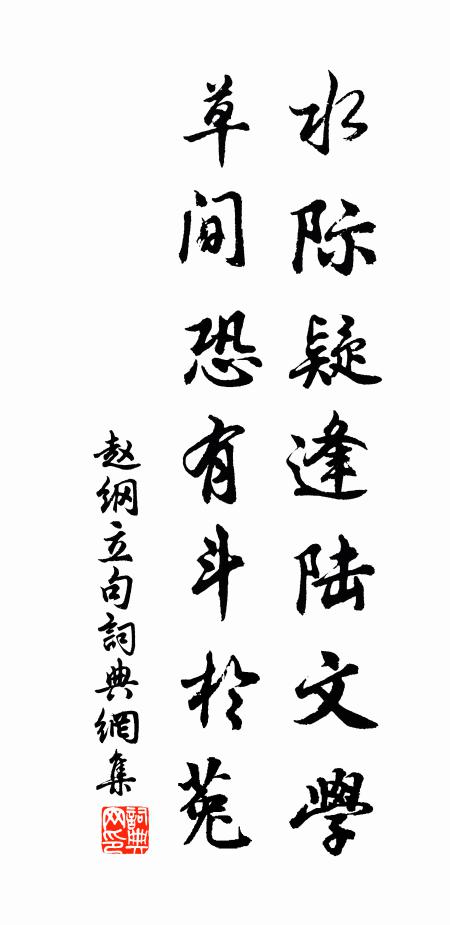 水际疑逢陆文學
草间恐有斗於菟
赵纲立句詞典網集
詞典网印